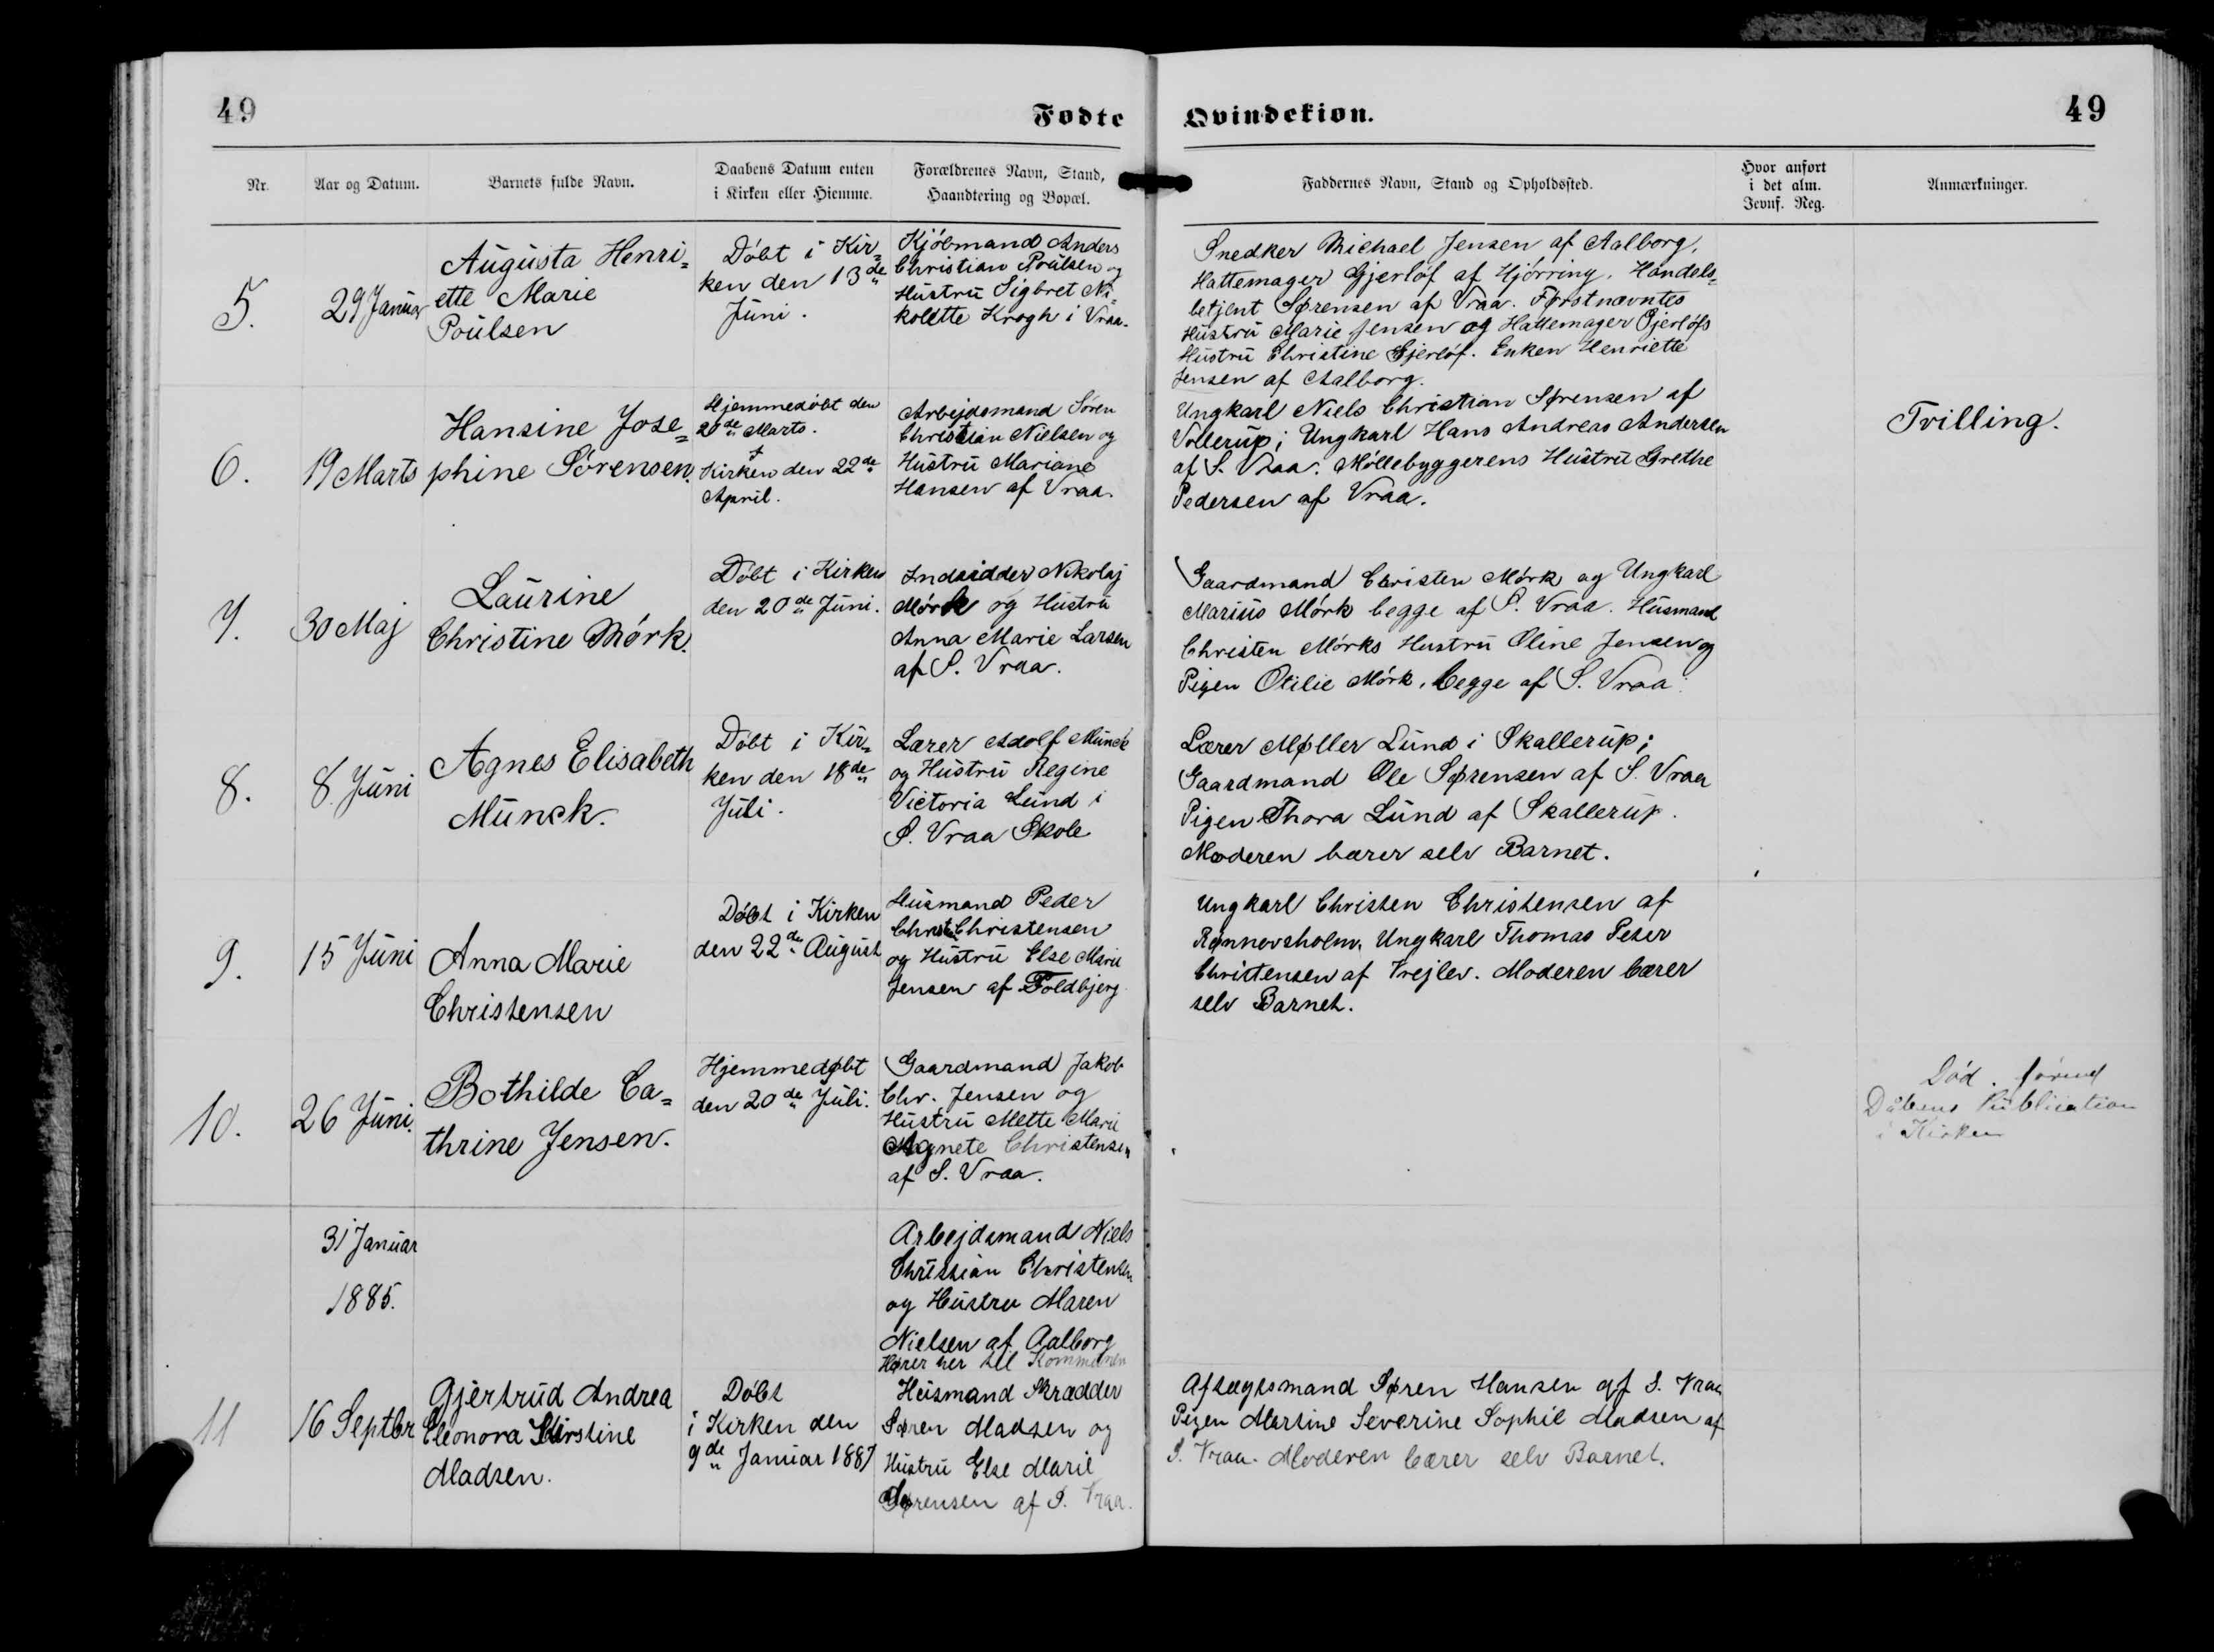 49
Fødte
Qvindekiøn.
49
Nr.
Aar og Datum.
Barnets fulde Navn.
Daabens Datum enten
i Kirken eller Hiemme.
Forældrenes Navn, Stand,
Haandtering og Bopæl.
Faddernes Navn, Stand og Opholdssted.
Hvor anført
i det alm.
Jevnf. Reg.
Anmærkninger.
5.
29 Januar
Augusta Henri=
ette Marie
Poulsen
Döbt i Kir=
ken den 13de
Juni.
Kjöbmand Anders
Christian Poulsen og
Hustru Sigbret Ni=
kolette Krogh i Vraa.
Snedker Michael Jensen af Aalborg,
Hattemager Gjerlöf af Hjörring. Handels=
betjent Sørensen af Vraa. Førstnævntes
Hustru Marie Jensen og Hattemager Gjerlöfs
Hustru Christine Gjerlöf. Enken Henriette
Jensen af Aalborg.
6.
19 Marts
Hansine Jose=
phine Sörensen.
Hjemmedöbt den
20de Marts.
†
Kirken den 22de
April.
Arbejdsmand Sören
Christian Nielsen og
Hustru Mariane
Hansen af Vraa.
Ungkarl Niels Christian Sørensen af
Vollerup; Ungkarl Hans Andreas Andersen
af S. Vraa. Möllebyggerens Hustru Grethe
Pedersen af Vraa.
Tvilling.
7.
30 Maj
Laurine
Christine Mörk.
Döbt i Kirken
den 20de Juni.
Indsidder Nikolaj
Mörk og Hustru
Anna Marie Larsen
af S. Vraa.
Gaardmand Christen Mörk og Ungkarl
Marius Mörk begge af S. Vraa. Husmand
Christen Mörks Hustru Oline Jensen og
Pigen Otilie Mörk, begge af S. Vraa.
8.
8. Juni
Agnes Elisabeth
Munck.
Döbt i Kir=
ken den 18de
Juli.
Lærer Adolf Munck
og Hustru Regine
Victoria Lund i
S. Vraa Skole
Lærer Møller Lund i Skallerup;
Gaardmand Ole Sørensen af S. Vraa
Pigen Thora Lund af Skallerup.
Moderen bærer selv Barnet.
9.
15 Juni
Anna Marie
Christensen
Döbt i Kirken
den 22de August
Husmand Peder
Christensen
og Hustru Else Marie
Jensen af Foldbjerg
Ungkarl Christen Christensen af
Rønnovsholm, Ungkarl Thomas Peter
Christensen af Vrejlev. Moderen bærer
selv Barnet.
10.
26 Juni.
Bothilde Ca=
thrine Jensen.
Hjemmedøbt
den 20de Juli.
Gaardmand Jakob
Chr. Jensen og
Hustru Mette Marie
Agnete Christensen
af S. Vraa.
Död. förend
Dåbens Publication
i Kirken
31 Januar
1885.
Arbejdsmand Niels
Christian Christensen
og Hustru Maren
Nielsen af Aalborg
Hører her til Kommunen
11
16 Septbr
Gjertrud Andrea
Eleonora Kirstine
Madsen.
Döbt
i Kirken den
9de Januar 1887
Husmand Skrædder
Søren Madsen og
Hustru Else Marie
Sørensen af S. Vraa.
Aftægtsmand Søren Hansen af S. Vraa
Pigen Martine Severine Sophie Madsen af
S. Vraa. Moderen bærer selv Barnet.